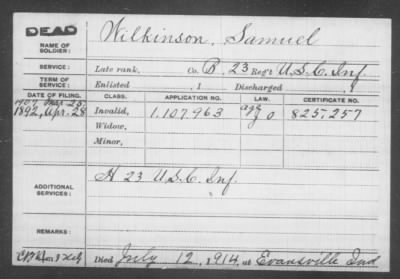 DEAD
Wilkinson, Samuel
NAME OF SOLDIER:
SERVICE: Late rank, Co. B, 23 Reg't U.S.C. Inf
TERM OF SERVICE: Enlisted , 1 Discharged , 1
DATE OF FILING. CLASS. APPLICATION NO. LAW. CERTIFICATE NO.
1907, Mar. 25. age
1892, Apr. 28 Invalid, 1,107,963 825,257
Widow,
Minor,
ADDITIONAL SERVICES: H 23 U.S.C. Inf.
REMARKS:
Died July 12, 1914, at Evansville Ind